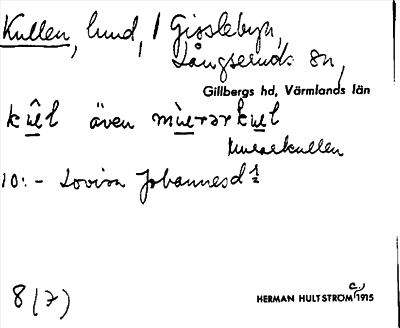 Kullen, lund, i Gisslebyn,
Långseruds sn,
Gillbergs hd, Värmlands län
kûl även mùrarkul
Murarekullen
10:- Lovisa Johannesd ½
8(7)
HERMAN HULTSTRÖM c. 1915